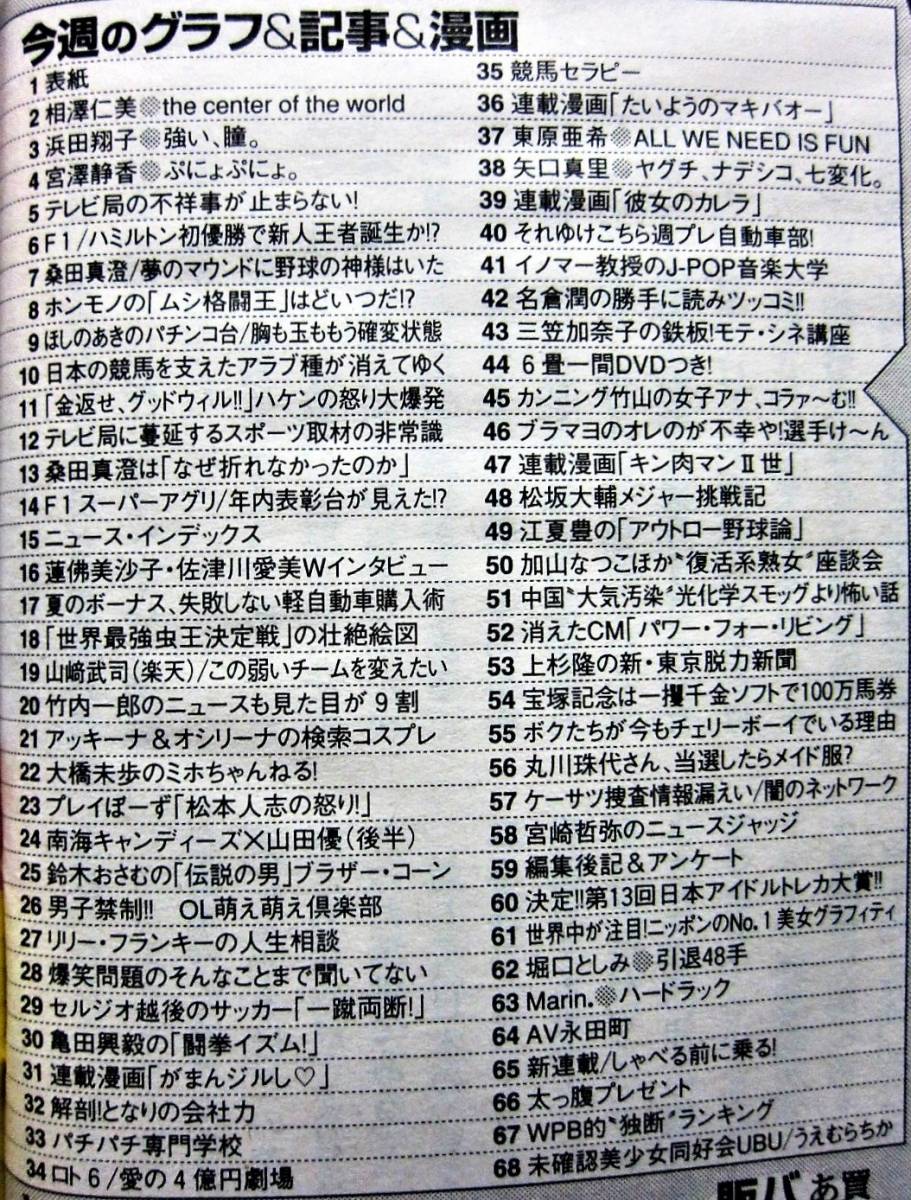 今週のグラフ&記事&漫画
1 表紙
2 相澤仁美◎the center of the world
3 浜田翔子◎強い、瞳。
4 宮澤静香◎ぷにょぷにょ。
5 テレビ局の不祥事が止まらない!
6 F1/ハミルトン初優勝で新人王者誕生か!?
7 桑田真澄/夢のマウンドに野球の神様はいた
8 ホンモノの「ムシ格闘王」はどいつだ!?
9 ほしのあきのパチンコ台/胸も玉ももう確変状態
10 日本の競馬を支えたアラブ種が消えてゆく
11 「金返せ、グッドウィル!!」ハケンの怒り大爆発
12 テレビ局に蔓延するスポーツ取材の非常識
13 桑田真澄は「なぜ折れなかったのか」
14 F1スーパーアグリ/年内表彰台が見えた!?
15 ニュース・インデックス
16 蓮佛美沙子・佐津川愛美Wインタビュー
17 夏のボーナス、失敗しない軽自動車購入術
18 「世界最強虫王決定戦」の壮絶絵図
19 山﨑武司(楽天)/この弱いチームを変えたい
20 竹内一郎のニュースも見た目が9割
21 アッキーナ&オシリーナの検索コスプレ
22 大橋未歩のミホちゃんねる!
23 プレイぼーず「松本人志の怒り!」
24 南海キャンディーズ×山田優(後半)
25 鈴木おさむの「伝説の男」ブラザー・コーン
26 男子禁制!! OL萌え萌え倶楽部
27 リリー・フランキーの人生相談
28 爆笑問題のそんなことまで聞いてない
29 セルジオ越後のサッカー「一蹴両断!」
30 亀田興毅の「闘拳イズム!」
31 連載漫画「がまんジルし♡」
32 解剖!となりの会社力
33 パチパチ専門学校
34 ロト6/愛の4億円劇場
35 競馬セラピー
36 連載漫画「たいようのマキバオー」
37 東原亜希◎ALL WE NEED IS FUN
38 矢口真里◎ヤグチ、ナデシコ、七変化。
39 連載漫画「彼女のカレラ」
40 それゆけこちら週プレ自動車部!
41 イノマー教授のJ-POP音楽大学
42 名倉潤の勝手に読みツッコミ!!
43 三笠加奈子の鉄板!モテ・シネ講座
44 6畳一間DVDつき!
45 カンニング竹山の女子アナ、コラァ〜む!!
46 ブラマヨのオレのが不幸や!選手け〜ん
47 連載漫画「キン肉マンⅡ世」
48 松坂大輔メジャー挑戦記
49 江夏豊の「アウトロー野球論」
50 加山なつこほか〝復活系熟女〟座談会
51 中国〝大気汚染〟光化学スモッグより怖い話
52 消えたCM「パワー・フォー・リビング」
53 上杉隆の新・東京脱力新聞
54 宝塚記念は一攫千金ソフトで100万馬券
55 ボクたちが今もチェリーボーイでいる理由
56 丸川珠代さん、当選したらメイド服?
57 ケーサツ捜査情報漏えい/闇のネットワーク
58 宮崎哲弥のニュースジャッジ
59 編集後記&アンケート
60 決定!!第13回日本アイドルトレカ大賞!!
61 世界中が注目!ニッポンのNo.1美女グラフィティ
62 堀口としみ◎引退48手
63 Marin.◎ハードラック
64 AV永田町
65 新連載/しゃべる前に乗る!
66 太っ腹プレゼント
67 WPB的〝独断〟ランキング
68 未確認美少女同好会UBU/うえむらちか